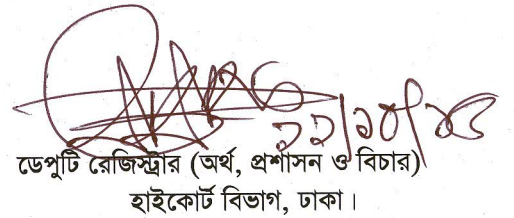 ২২/১০/১৫
ডেপুটি রেজিস্ট্রার (অর্থ, প্রশাসন ও বিচার)
হাইকোর্ট বিভাগ, ঢাকা।